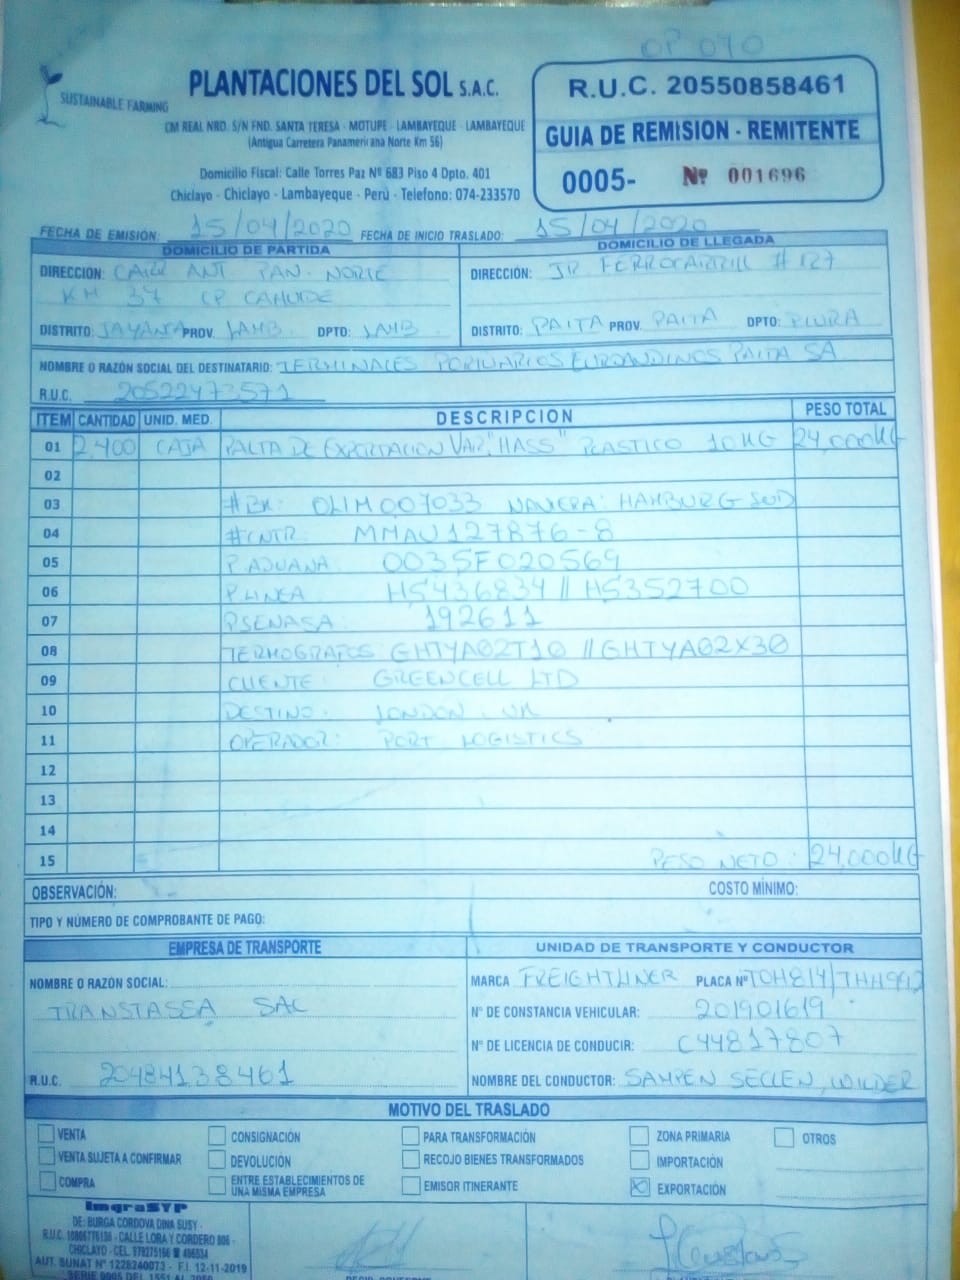 OP 070
SUSTAINABLE FARMING
PLANTACIONES DEL SOL S.A.C.
CM REAL NRO. S/N FND. SANTA TERESA - MOTUPE - LAMBAYEQUE - LAMBAYEQUE
(Antigua Carretera Panamericana Norte Km 56)
Domicilio Fiscal: Calle Torres Paz Nº 683 Piso 4 Dpto. 401
Chiclayo - Chiclayo - Lambayeque - Perú - Telefono: 074-233570
R.U.C. 20550858461
GUIA DE REMISION - REMITENTE
0005- Nº 001696
FECHA DE EMISIÓN: 15/04/2020 FECHA DE INICIO TRASLADO: 15/04/2020
DOMICILIO DE PARTIDA
DIRECCION: CARR ANT PAN. NORTE
KM 37 CP CAHUIDE
DISTRITO: JAYANCA PROV. LAMB. DPTO: LAMB.
DOMICILIO DE LLEGADA
DIRECCIÓN: JR FERROCARRIL #127
DISTRITO: PAITA PROV. PAITA DPTO: PIURA
NOMBRE O RAZÓN SOCIAL DEL DESTINATARIO: TERMINALES PORTUARIOS EUROANDINOS PAITA SA
R.U.C. 20522473571
ITEM CANTIDAD UNID. MED. DESCRIPCION PESO TOTAL
01 2,400 CAJA PALTA DE EXPORTACION VAR. "HASS" PLASTICO 10KG 24,000KG
02
03 #BK: OLIM007033 NAVIERA: HAMBURG SUD
04 #CNTR: MMAU127876-8
05 P.ADUANA: 0035F020569
06 P.LINEA HS436834 // HS352700
07 PSENASA: 192611
08 TERMOGRAFOS: GHTYA02T10 // GHTYA02X30
09 CLIENTE: GREENCELL LTD
10 DESTINO: LONDON - UK
11 OPERADOR: PORT LOGISTICS
12
13
14
15 PESO NETO: 24,000KG
OBSERVACIÓN: COSTO MÍNIMO:
TIPO Y NÚMERO DE COMPROBANTE DE PAGO:
EMPRESA DE TRANSPORTE
NOMBRE O RAZÓN SOCIAL:
TRANSTASSA SAC
R.U.C. 20484138461
UNIDAD DE TRANSPORTE Y CONDUCTOR
MARCA FREIGHTLINER PLACA Nº TOH814/THH992
Nº DE CONSTANCIA VEHICULAR: 201901619
Nº DE LICENCIA DE CONDUCIR: C44817807
NOMBRE DEL CONDUCTOR: SAMPEN SECLEN, WILDER
MOTIVO DEL TRASLADO
VENTA CONSIGNACIÓN PARA TRANSFORMACIÓN ZONA PRIMARIA OTROS
VENTA SUJETA A CONFIRMAR DEVOLUCIÓN RECOJO BIENES TRANSFORMADOS IMPORTACIÓN
COMPRA ENTRE ESTABLECIMIENTOS DE UNA MISMA EMPRESA EMISOR ITINERANTE X EXPORTACIÓN
ImgraSYP
DE: BURGA CORDOVA DINA SUSY -
R.U.C. 10806776136 - CALLE LORA Y CORDERO 806 -
CHICLAYO - CEL. 979275166
AUT. SUNAT Nº 1228240073 - F.I. 12-11-2019
SERIE 0005 DEL 1551 AL 2050